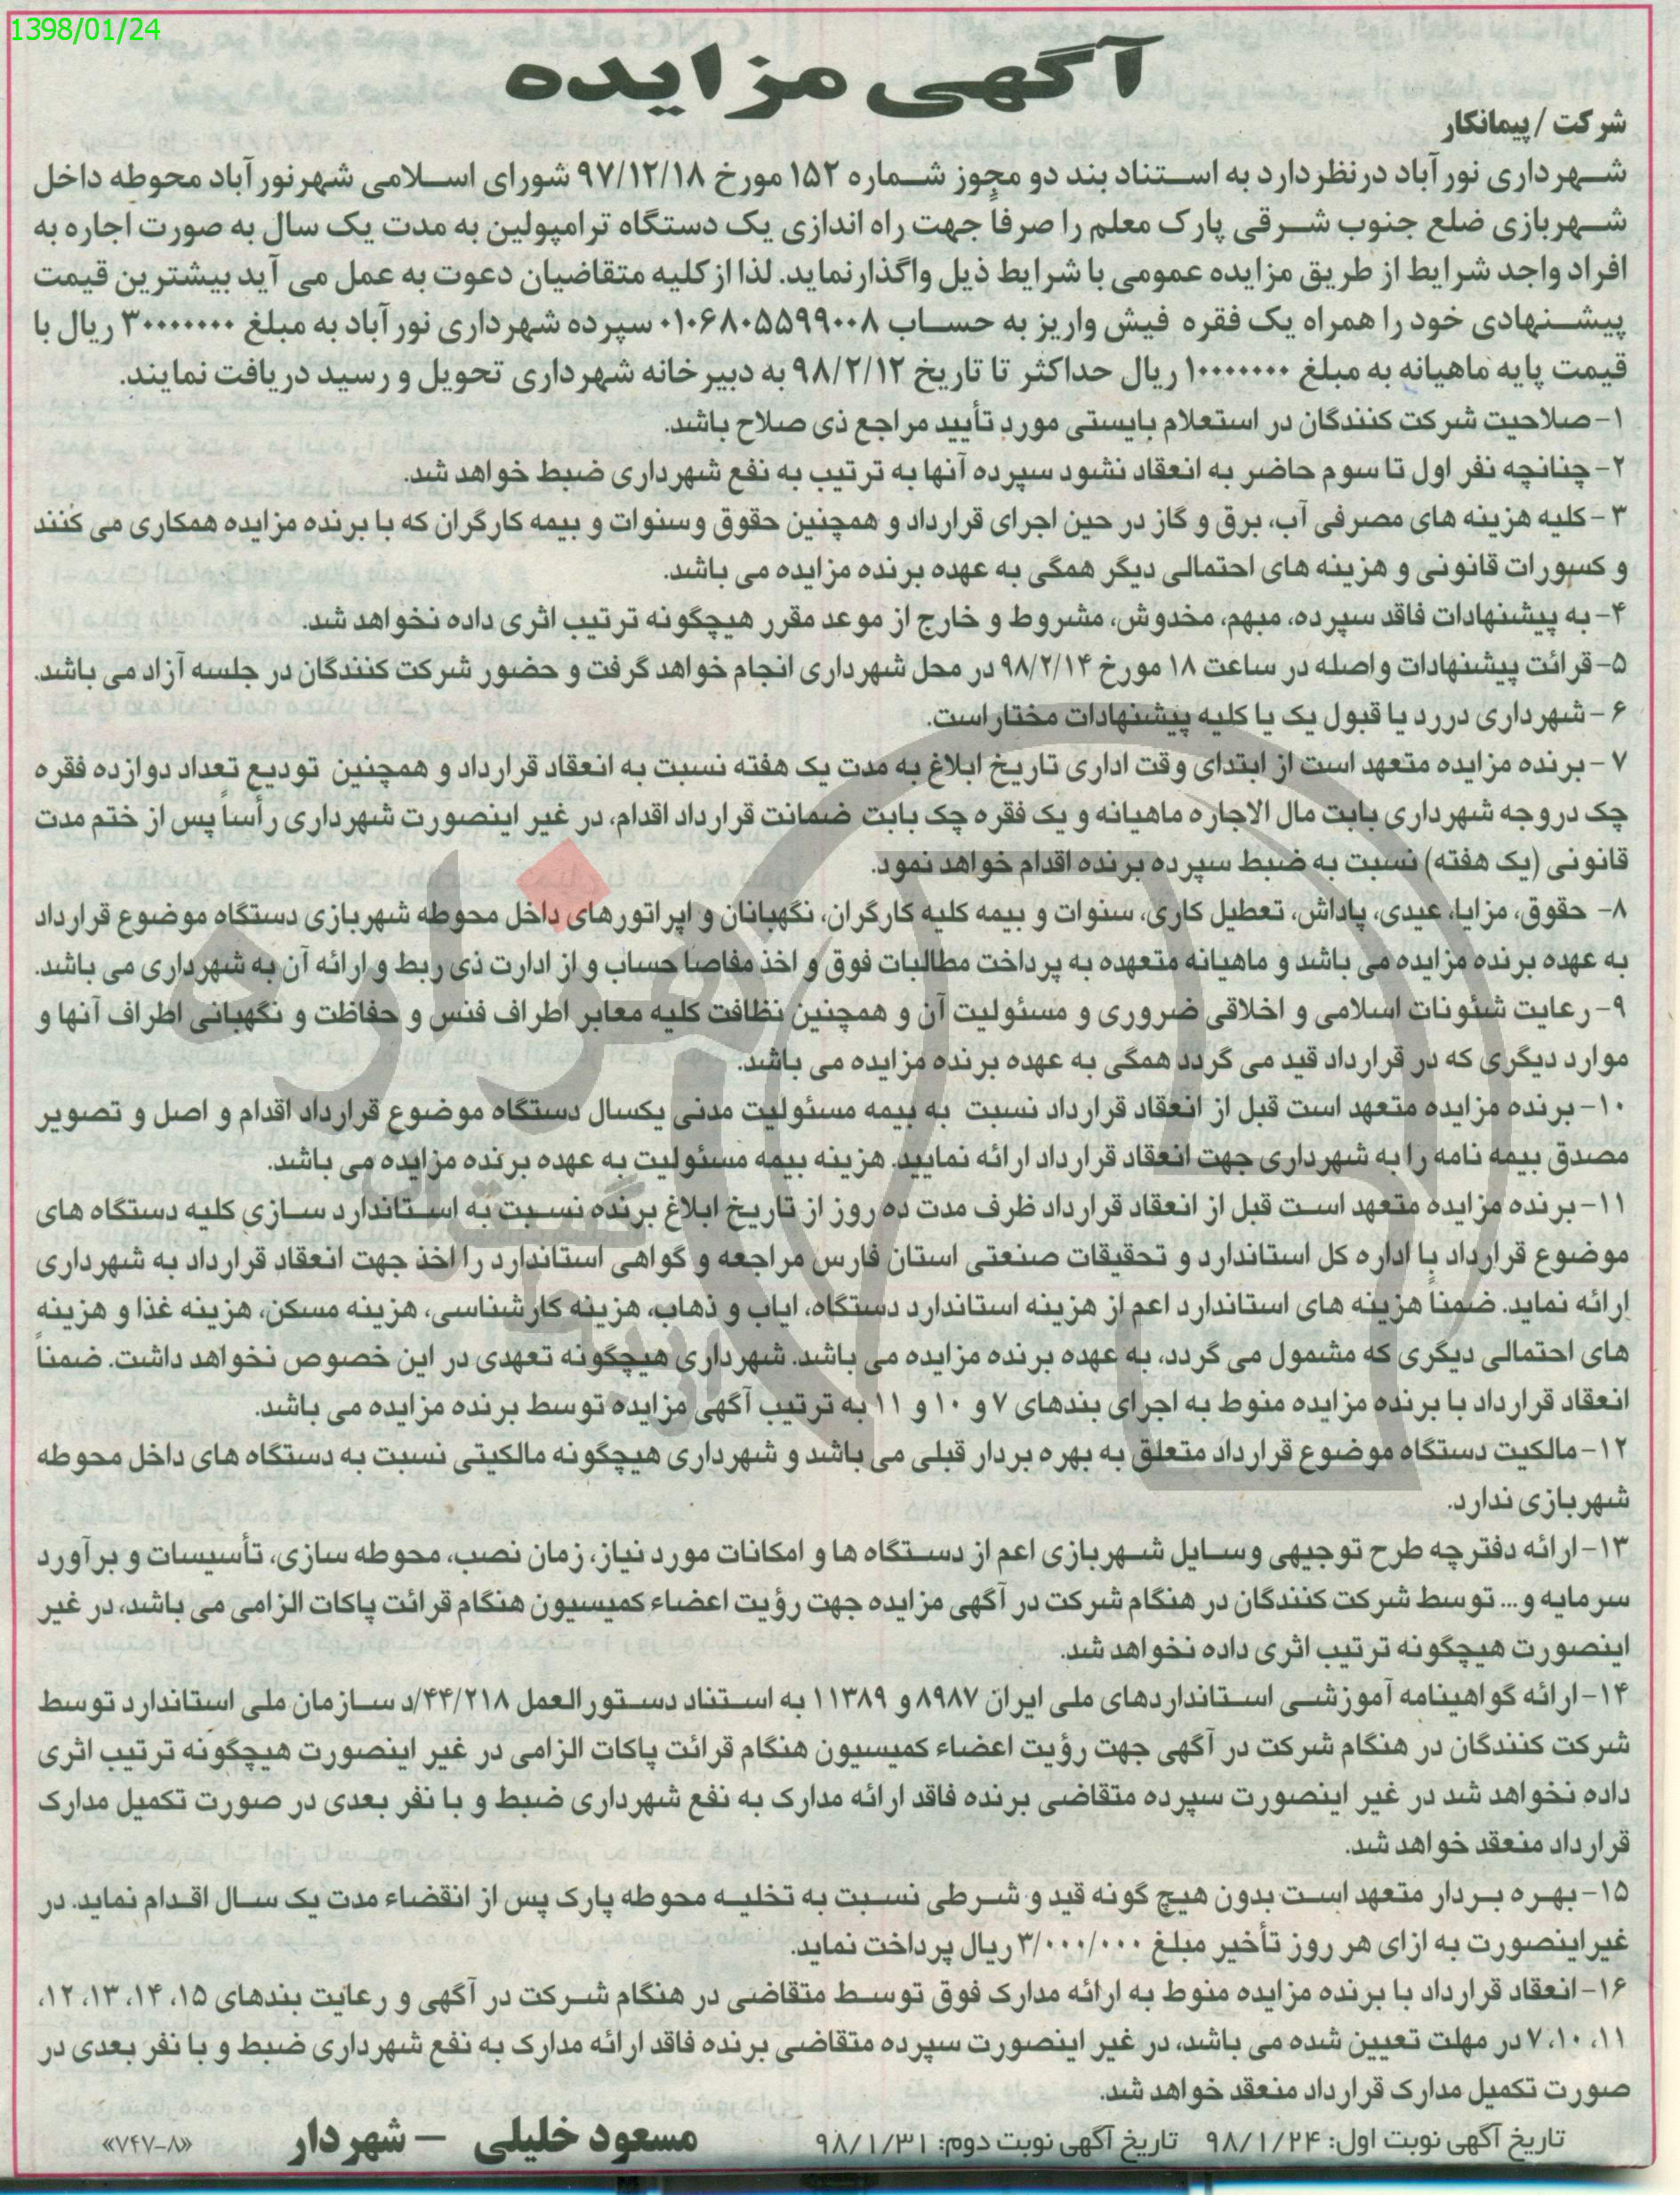 1398/01/24
آگهی مزایده
شرکت / پیمانکار
شهرداری نورآباد درنظر دارد به استناد بند دو مجوز شماره ۱۵۲ مورخ ۹۷/۱۲/۱۸ شورای اسلامی شهر نورآباد محوطه داخل
شهربازی ضلع جنوب شرقی پارک معلم را صرفاً جهت راه اندازی یک دستگاه ترامپولین به مدت یک سال به صورت اجاره به
افراد واجد شرایط از طریق مزایده عمومی با شرایط ذیل واگذار نماید. لذا از کلیه متقاضیان دعوت به عمل می آید بیشترین قیمت
پیشنهادی خود را همراه یک فقره فیش واریز به حساب ۰۱۰۶۸۰۵۵۹۹۰۰۸ سپرده شهرداری نورآباد به مبلغ ۳۰۰۰۰۰۰۰ ریال با
قیمت پایه ماهیانه به مبلغ ۱۰۰۰۰۰۰۰ ریال حداکثر تا تاریخ ۹۸/۲/۱۲ به دبیرخانه شهرداری تحویل و رسید دریافت نمایند.
۱- صلاحیت شرکت کنندگان در استعلام بایستی مورد تأیید مراجع ذی صلاح باشد.
۲- چنانچه نفر اول تا سوم حاضر به انعقاد نشود سپرده آنها به ترتیب به نفع شهرداری ضبط خواهد شد.
۳- کلیه هزینه های مصرفی آب، برق و گاز در حین اجرای قرارداد و همچنین حقوق وسنوات و بیمه کارگران که با برنده مزایده همکاری می کنند
و کسورات قانونی و هزینه های احتمالی دیگر همگی به عهده برنده مزایده می باشد.
۴- به پیشنهادات فاقد سپرده، مبهم، مخدوش، مشروط و خارج از موعد مقرر هیچگونه ترتیب اثری داده نخواهد شد.
۵- قرائت پیشنهادات واصله در ساعت ۱۸ مورخ ۹۸/۲/۱۴ در محل شهرداری انجام خواهد گرفت و حضور شرکت کنندگان در جلسه آزاد می باشد.
۶- شهرداری در رد یا قبول یک یا کلیه پیشنهادات مختار است.
۷- برنده مزایده متعهد است از ابتدای وقت اداری تاریخ ابلاغ به مدت یک هفته نسبت به انعقاد قرارداد و همچنین تودیع تعداد دوازده فقره
چک در وجه شهرداری بابت مال الاجاره ماهیانه و یک فقره چک بابت ضمانت قرارداد اقدام، در غیر اینصورت شهرداری رأساً پس از ختم مدت
قانونی (یک هفته) نسبت به ضبط سپرده برنده اقدام خواهد نمود.
۸- حقوق، مزایا، عیدی، پاداش، تعطیل کاری، سنوات و بیمه کلیه کارگران، نگهبانان و اپراتورهای داخل محوطه شهربازی دستگاه موضوع قرارداد
به عهده برنده مزایده می باشد و ماهیانه متعهده به پرداخت مطالبات فوق و اخذ مفاصا حساب و از ادارت ذی ربط و ارائه آن به شهرداری می باشد.
۹- رعایت شئونات اسلامی و اخلاقی ضروری و مسئولیت آن و همچنین نظافت کلیه معابر اطراف فنس و حفاظت و نگهبانی اطراف آنها و
موارد دیگری که در قرارداد قید می گردد همگی به عهده برنده مزایده می باشد.
۱۰- برنده مزایده متعهد است قبل از انعقاد قرارداد نسبت به بیمه مسئولیت مدنی یکسال دستگاه موضوع قرارداد اقدام و اصل و تصویر
مصدق بیمه نامه را به شهرداری جهت انعقاد قرارداد ارائه نمایید. هزینه بیمه مسئولیت به عهده برنده مزایده می باشد.
۱۱- برنده مزایده متعهد است قبل از انعقاد قرارداد ظرف مدت ده روز از تاریخ ابلاغ برنده نسبت به استاندارد سازی کلیه دستگاه های
موضوع قرارداد با اداره کل استاندارد و تحقیقات صنعتی استان فارس مراجعه و گواهی استاندارد را اخذ جهت انعقاد قرارداد به شهرداری
ارائه نماید. ضمناً هزینه های استاندارد اعم از هزینه استاندارد دستگاه، ایاب و ذهاب، هزینه کارشناسی، هزینه مسکن، هزینه غذا و هزینه
های احتمالی دیگری که مشمول می گردد، به عهده برنده مزایده می باشد. شهرداری هیچگونه تعهدی در این خصوص نخواهد داشت. ضمناً
انعقاد قرارداد با برنده مزایده منوط به اجرای بندهای ۷ و ۱۰ و ۱۱ به ترتیب آگهی مزایده توسط برنده مزایده می باشد.
۱۲- مالکیت دستگاه موضوع قرارداد متعلق به بهره بردار قبلی می باشد و شهرداری هیچگونه مالکیتی نسبت به دستگاه های داخل محوطه
شهربازی ندارد.
۱۳- ارائه دفترچه طرح توجیهی وسایل شهربازی اعم از دستگاه ها و امکانات مورد نیاز، زمان نصب، محوطه سازی، تأسیسات و برآورد
سرمایه و... توسط شرکت کنندگان در هنگام شرکت در آگهی مزایده جهت رؤیت اعضاء کمیسیون هنگام قرائت پاکات الزامی می باشد، در غیر
اینصورت هیچگونه ترتیب اثری داده نخواهد شد.
۱۴- ارائه گواهینامه آموزشی استانداردهای ملی ایران ۸۹۸۷ و ۱۱۳۸۹ به استناد دستورالعمل ۴۴/۲۱۸/د سازمان ملی استاندارد توسط
شرکت کنندگان در هنگام شرکت در آگهی جهت رؤیت اعضاء کمیسیون هنگام قرائت پاکات الزامی در غیر اینصورت هیچگونه ترتیب اثری
داده نخواهد شد در غیر اینصورت سپرده متقاضی برنده فاقد ارائه مدارک به نفع شهرداری ضبط و با نفر بعدی در صورت تکمیل مدارک
قرارداد منعقد خواهد شد.
۱۵- بهره بردار متعهد است بدون هیچ گونه قید و شرطی نسبت به تخلیه محوطه پارک پس از انقضاء مدت یک سال اقدام نماید. در
غیر اینصورت به ازای هر روز تأخیر مبلغ ۳/۰۰۰/۰۰۰ ریال پرداخت نماید.
۱۶- انعقاد قرارداد با برنده مزایده منوط به ارائه مدارک فوق توسط متقاضی در هنگام شرکت در آگهی و رعایت بندهای ۱۵، ۱۴، ۱۳، ۱۲،
۱۱، ۱۰، ۷ در مهلت تعیین شده می باشد، در غیر اینصورت سپرده متقاضی برنده فاقد ارائه مدارک به نفع شهرداری ضبط و با نفر بعدی در
صورت تکمیل مدارک قرارداد منعقد خواهد شد.
تاریخ آگهی نوبت اول: ۹۸/۱/۲۴ تاریخ آگهی نوبت دوم: ۹۸/۱/۳۱ مسعود خلیلی – شهردار «۷۴۷-۸»